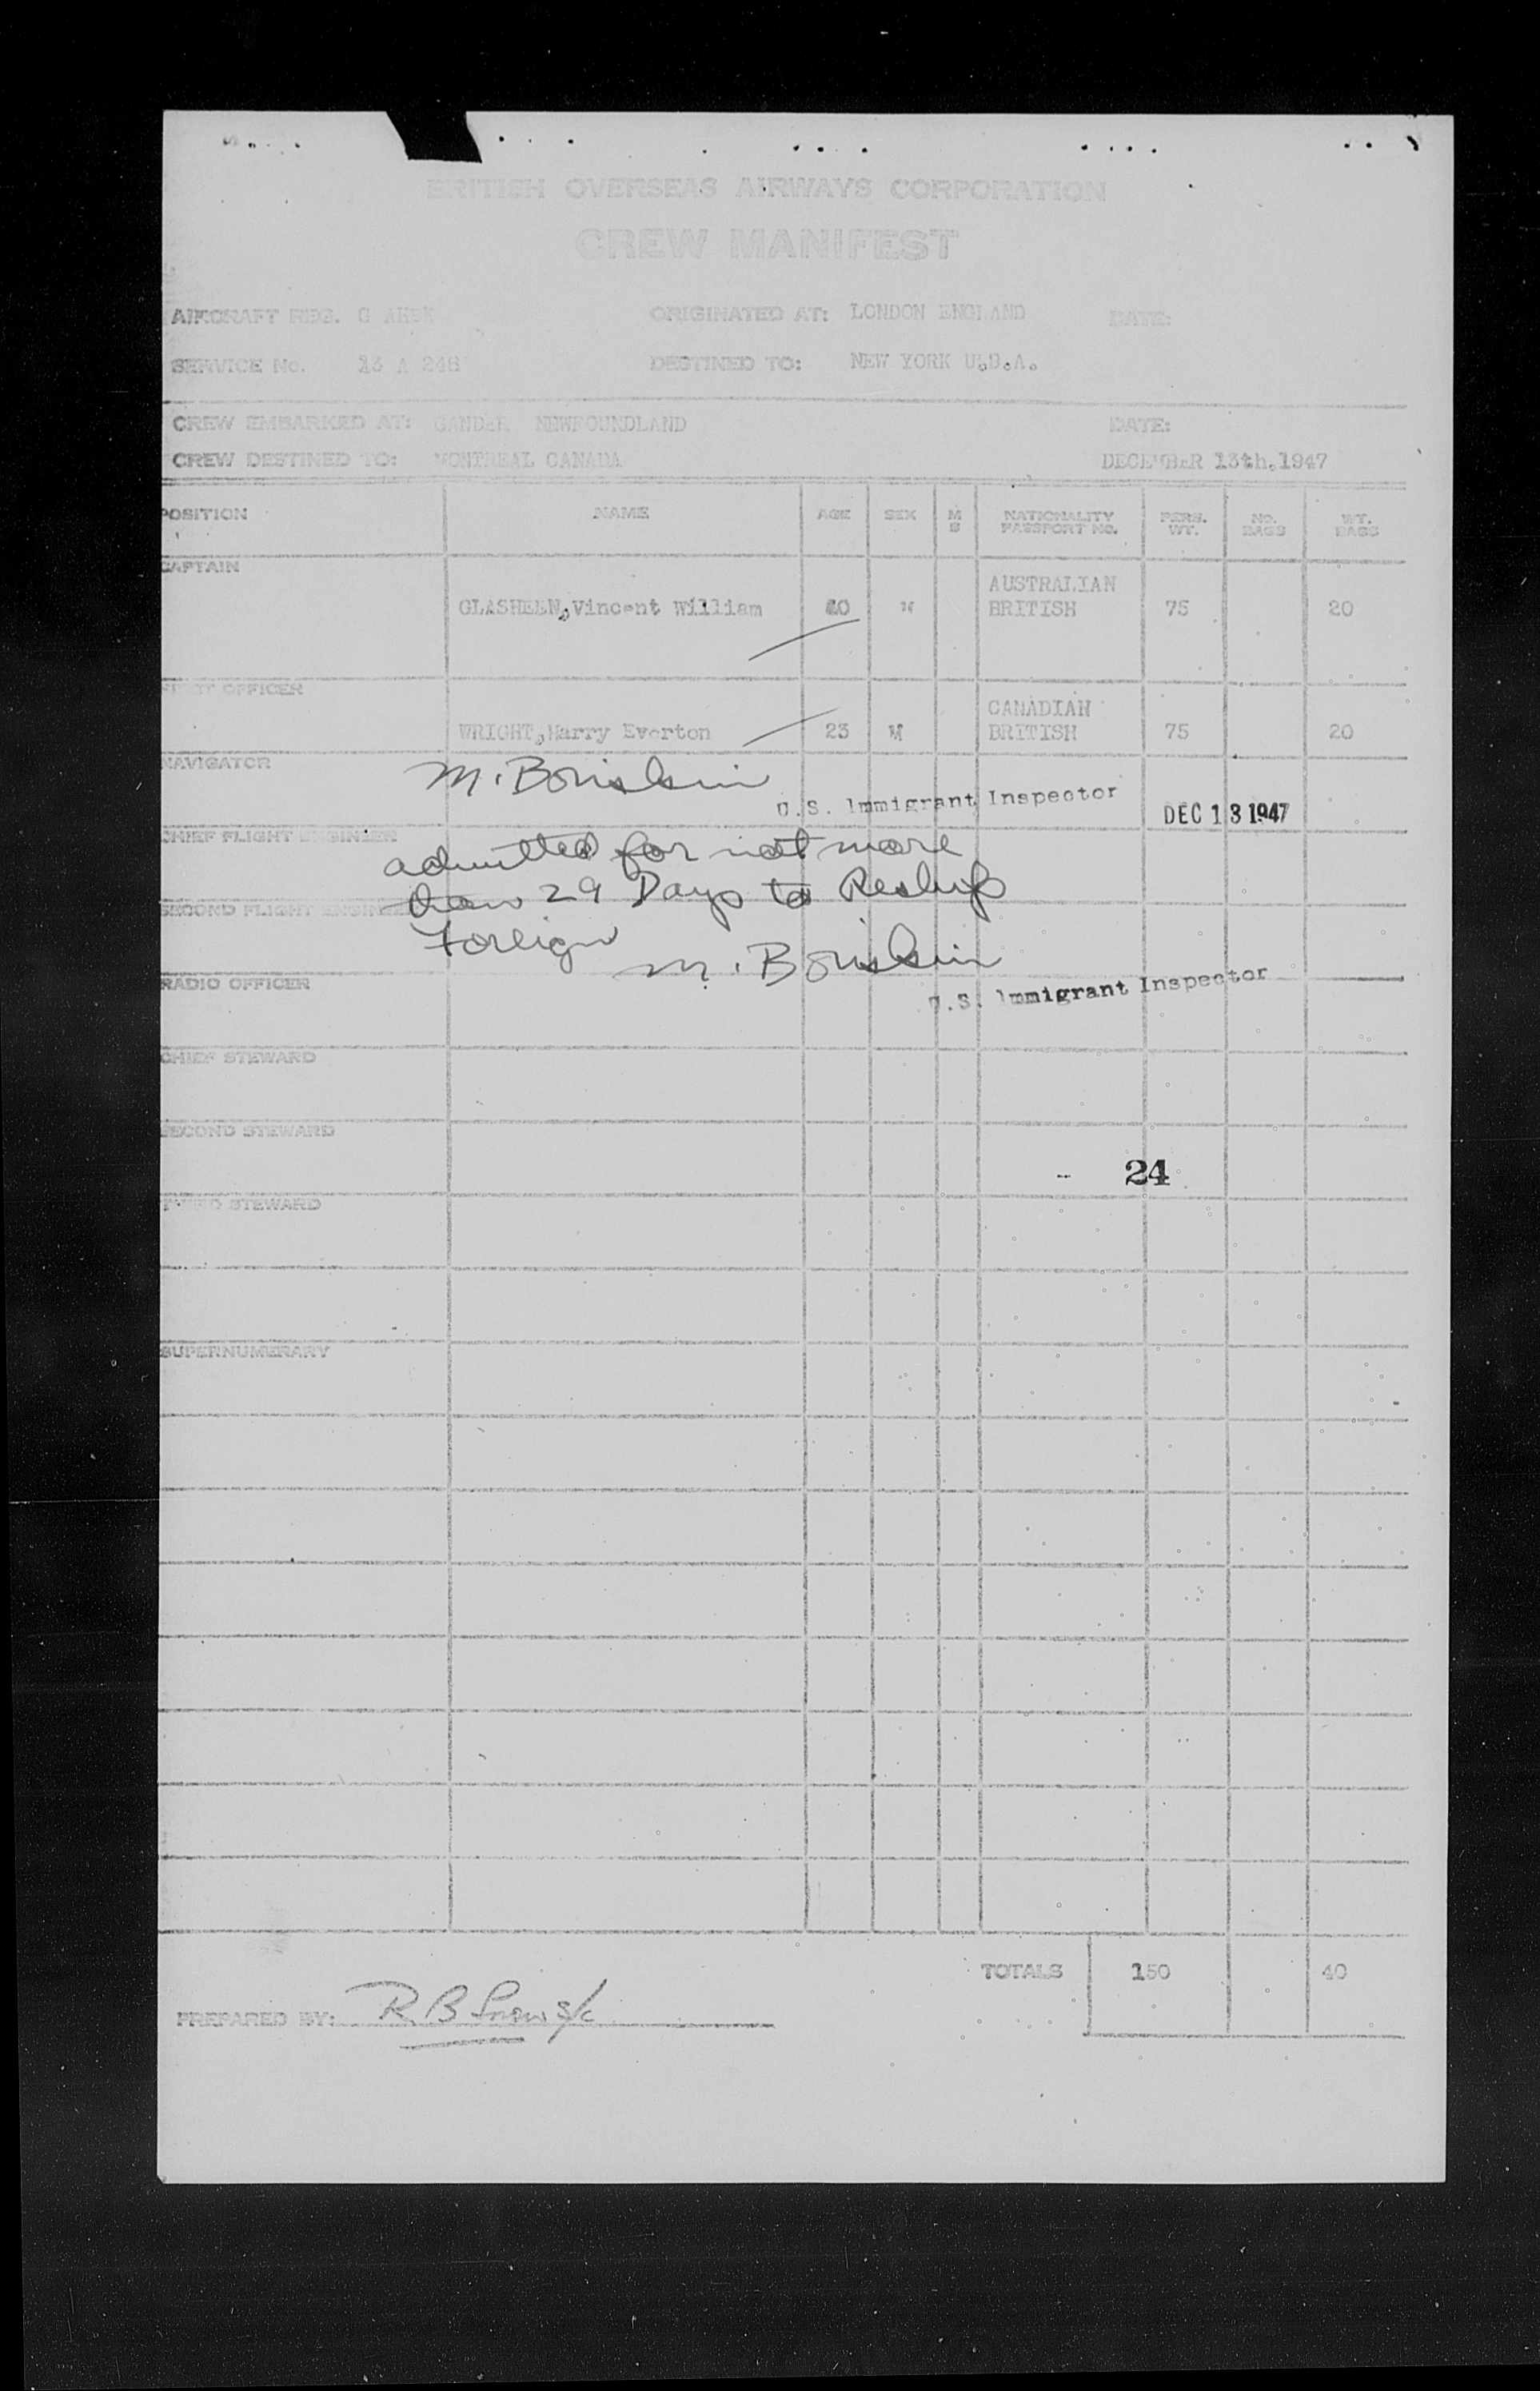 BRITISH OVERSEAS AIRWAYS CORPORATION
CREW MANIFEST
AIRCRAFT REG. G ORIGINATED AT: LONDON ENGLAND DATE:
SERVICE No. 13 A 248 DESTINED TO: NEW YORK U.S.A.
CREW EMBARKED AT: GANDER NEWFOUNDLAND DATE:
CREW DESTINED TO: MONTREAL CANADA DECEMBER 13th,1947
POSITION NAME AGE SEX M S NATIONALITY PASSPORT NO. PERS. WT. NO. BAGS WT. BAGS
CAPTAIN
AUSTRALIAN
GLASHEEN,Vincent William 40 M BRITISH 75 20
FIRST OFFICER
CANADIAN
WRIGHT,Harry Everton 23 M BRITISH 75 20
NAVIGATOR
M.
U.S. Immigrant Inspector DEC 13 1947
CHIEF FLIGHT ENGINEER
admitted for not more
than 29 Days to Reship
SECOND FLIGHT ENGINEER
Foreign
M.
RADIO OFFICER
U.S. Immigrant Inspector
CHIEF STEWARD
SECOND STEWARD
- 24
THIRD STEWARD
SUPERNUMERARY
TOTALS 150 40
PREPARED BY: R B